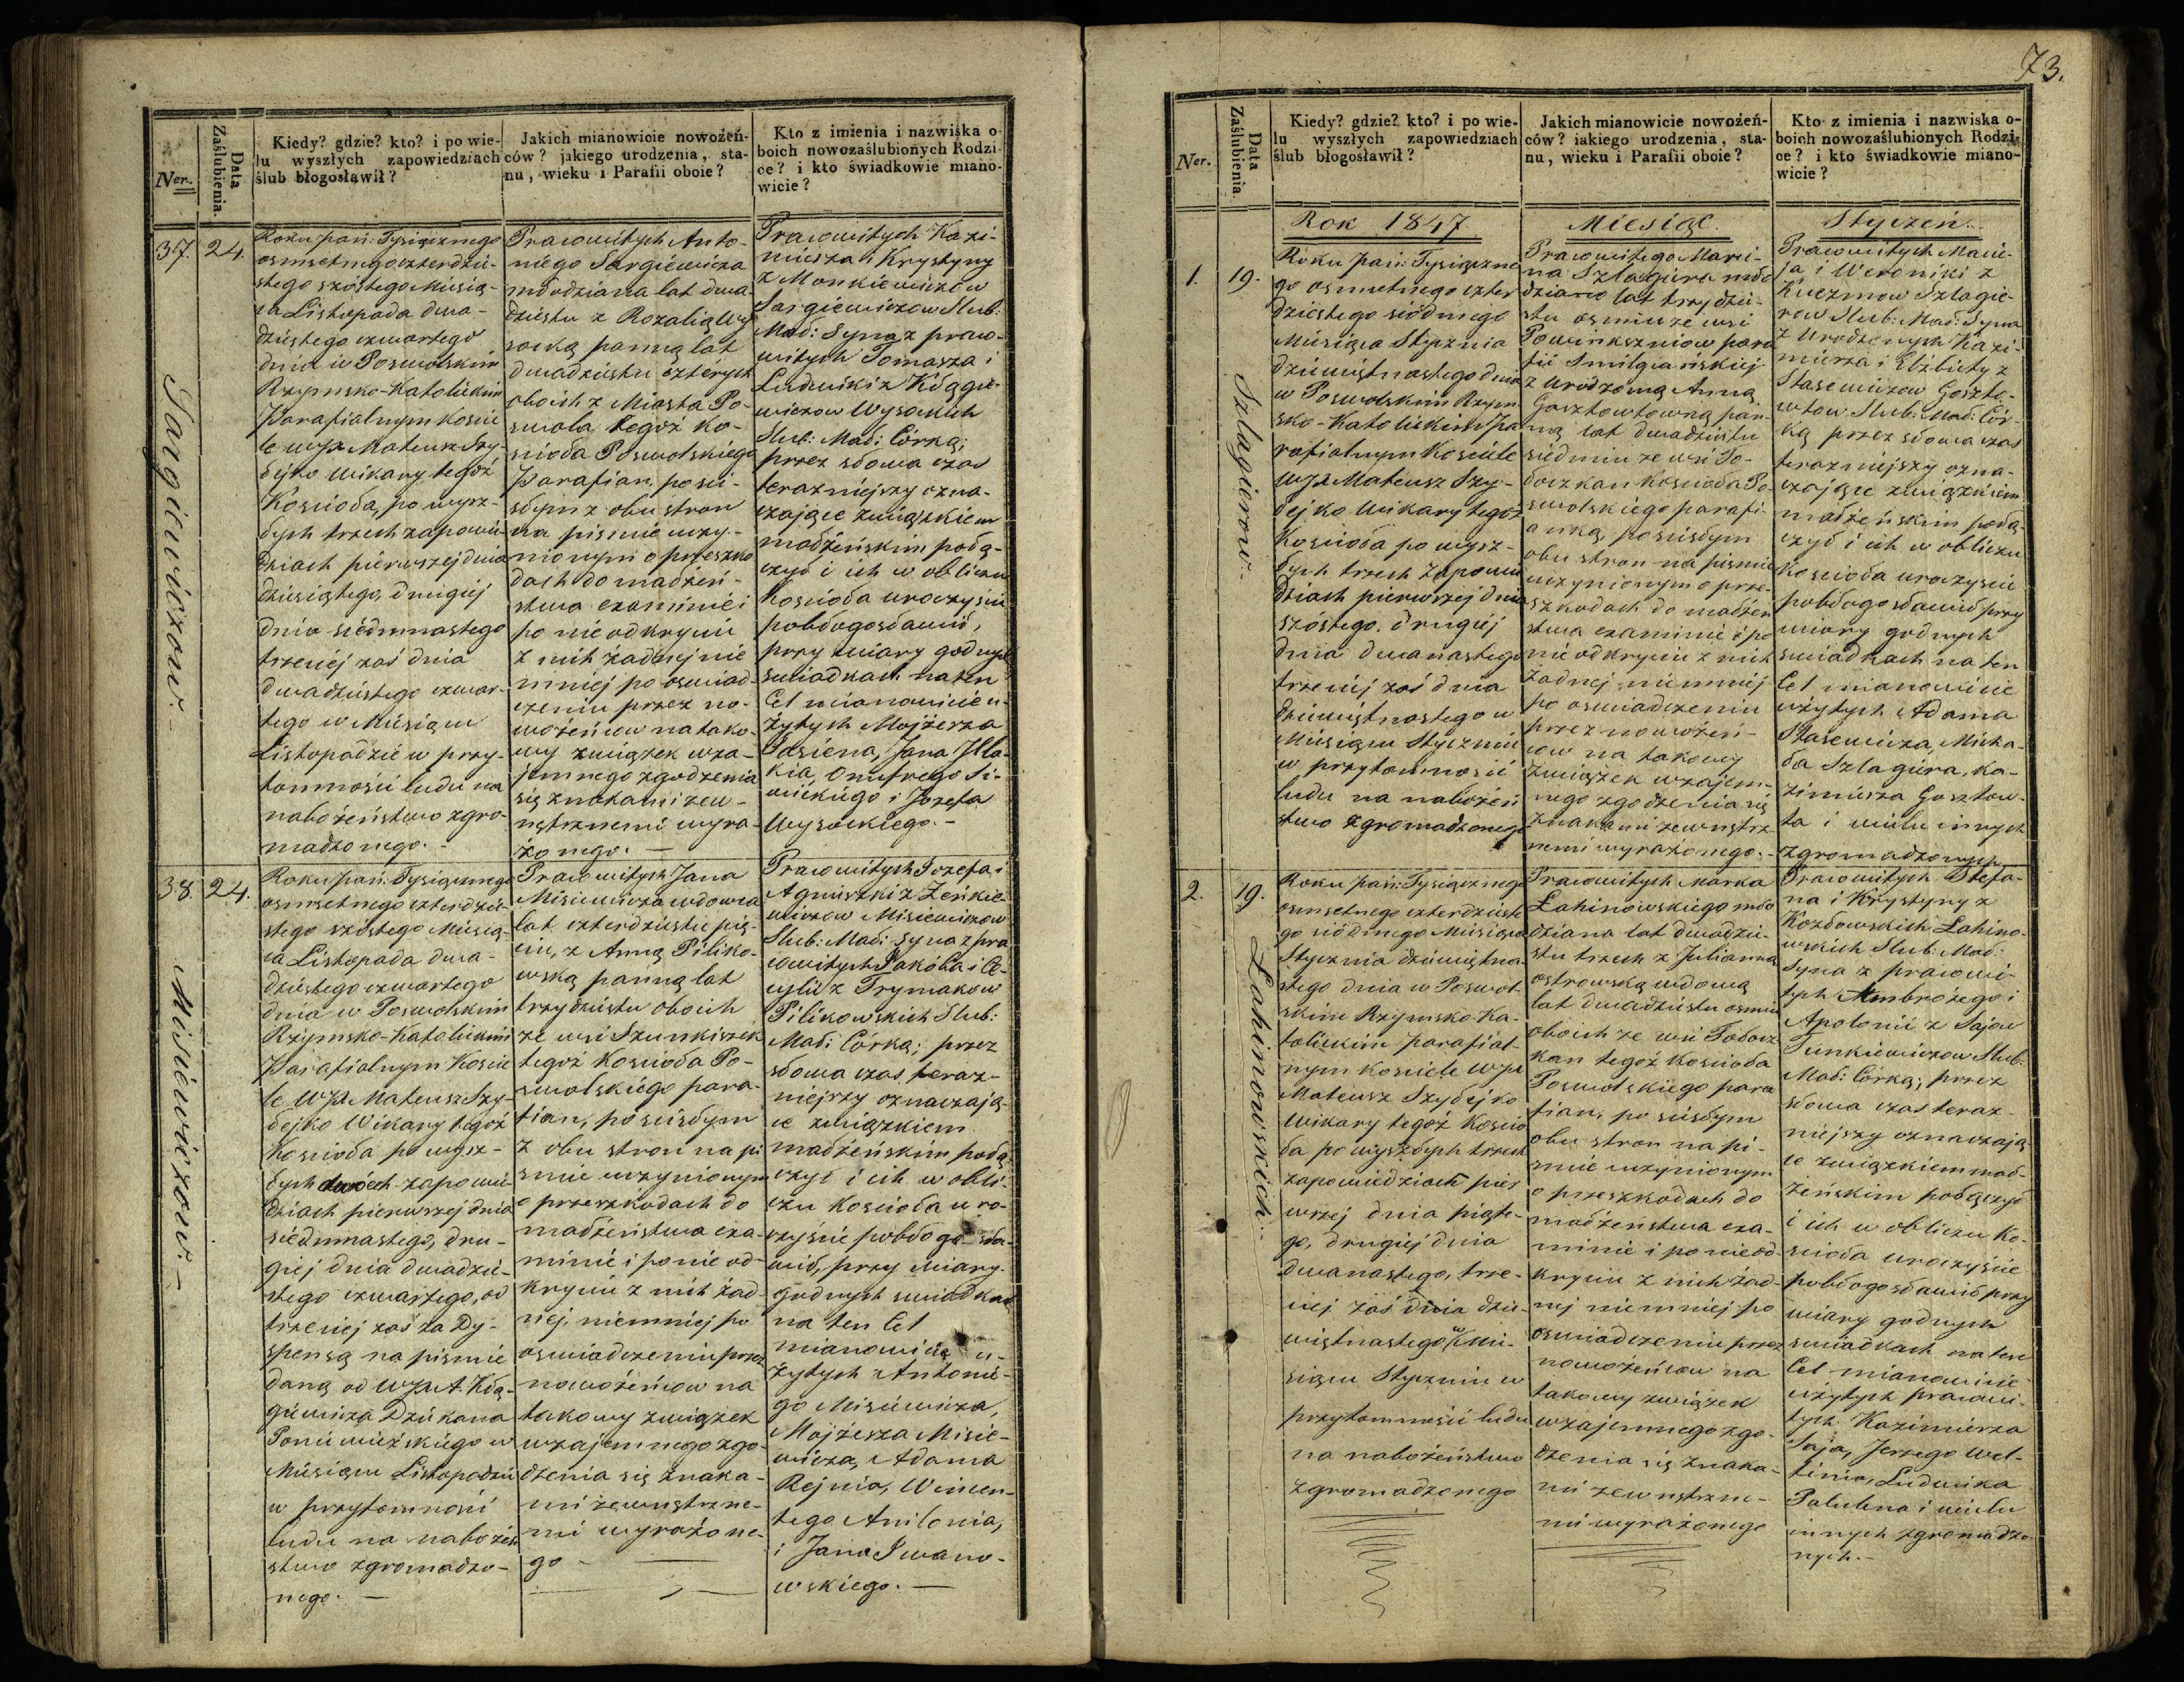 Ner.
Data
Zaślubienia.
Kiedy? gdzie? kto? i po wie-
lu wyszłych zapowiedziach
ślub błogosławił?
Jakich mianowicie nowożeń-
ców? jakiego urodzenia, sta-
nu, wieku i Parafii oboie?
Kto z imienia i nazwiska o-
boich nowozaślubionych Rodzi-
ce? i kto świadkowie miano-
wicie?
37.
24.
Sargiewiczow.-
Roku pań: Tysiącznego
osmsetnego czterdzie-
stego szóstego Miesią-
ca Listopada dwa-
dziestego czwartego
dnia w Poswolskim
Rzymsko-Katolickim
Parafialnym Koscie
le WJX Mateusz Szy-
dejko Wikary tegoż
Kościoła, po wysz-
łych trzech zapowie
dziach piérwszej dnia
dziesiątego, drugiej
dnia siedmnastego
trzeciéj zaś dnia
dwadziestego czwar-
tego w Miesiącu
Listopadzie w przy-
tomnosci ludu na
nabożeństwo zgro-
madzonego.-
Prawowitych Anto-
niego Sargiéwicza
młodziana lat dwa-
dziestu z Rozalią Wy
socką panną lat
dwadziestu czterych
oboich z Miasta Po-
swola tegoż ko-
scioła Poswolskiégo
Parafian, po sci-
słym z obu stron
na pismie uczy-
nionym o przeszko
dach do małżeń-
stwa examinie i
po nieodkryciu
z nich żadnej nie
mniej po oswiad-
czeniu przez no-
wożeńcow na tako-
wy związek wza-
jemnego zgodzenia
się znakami zew-
nętrznemi wyra-
żonego.-
Prawowitych Kazi-
miérza i Krystyny
z Monkiewiczów
Sargiewiczow Slub:
Mał: Syna z prawo-
witych Tomasza i
Ludwiki z Kłągie-
wiczow Wysockich
Slub: Mał: Córką;
przez słowa czas
terazniejszy ozna-
czające związkiem
małżeńskim połą-
czył i ich w obliczu
Kościoła uroczyscie
pobłogosławił,
przy wiary godnych
swiadkach na ten
Cel mianowicie u-
żytych Mojżesza
Onufrego Si-
wickiégo i Jozefa
Wysockiego.-
38.
24.
Misiewiczow.-
Roku pań: Tysiącznego
osmsetnego czterdzie-
stego szóstego Miesią-
ca Listopada dwa-
dziestego czwartego
dnia w Poswolskim
Rzymsko-Katolickim
Parafialnym Koscie
le WJX Mateusz Szy-
dejko Wikary tegoż
Kościoła po wysz-
łych dwóch zapowie-
dziach pierwszej dnia
siédmnastego, dru-
giej dnia dwadzie-
stego czwartego, od
trzeciej zaś za Dy-
spensą na pismie
daną od WJX A. Kłą-
giewicza Dziekana
Poniewiéżskiégo w
Miesiącu Listopadzie
w przytomności
ludu na nabożeń
stwo zgromadzo-
nego.-
Prawowitych Jana
Misiewicza wdowca
lat czterdziestu pię-
ciu, z Anną Piliko-
wską panną lat
trzydziestu oboich
ze wsi Szunkiszek
tegoż Kościoła Po-
swolskiégo para-
fian, po scisłym
z obu stron na pi
smie uczynionym
o przeszkodach do
małżeństwa exa-
minie i po nieod-
kryciu z nich żad-
nej, niemniej po
oswiadczeniu przez
nowożeńcow na
takowy związek
wzajemnego zgo-
dzenia się znaka-
mi zewnętrzne-
mi wyrażone-
go-
Prawowitych Jozefa i
Agnieszki z Zeńkie-
wiczow Misiewiczow
Slub: Mał: Syna z pra
wowitych Jakóba i Ce-
cylii z Trymakow
Pilikowskich Slub:
Mał: Córką; przez
słowa czas teraz-
niejszy oznaczają-
ce związkiem
małżeńskim połą-
czył i ich w obli-
czu Kościoła uro-
czyście pobłogosła-
wił, przy wiary-
godnych swiadkach
na ten Cel
mianowicie u-
żytych Antonie-
go Misiewicza,
Mojżesza Misie-
wicza, Adama
Rejnia, Wincen-
tego Anilonia,
i Jana Iwano-
wskiego.-
73.
Ner.
Data
Zaślubienia.
Kiedy? gdzie? kto? i po wie-
lu wyszłych zapowiedziach
ślub błogosławił?
Jakich mianowicie nowożeń-
ców? iakiego urodzenia, sta-
nu, wieku i Parafii oboie?
Kto z imienia i nazwiska o-
boich nowozaślubionych Rodzi-
ce? i kto świadkowie miano-
wicie?
Rok 1847
Miesiąc
Styczeń.
1.
19.
Szlagierow.-
Roku pań: Tysiączne
go osmsetnego czter
dziestego siódmego
Miesiąca Stycznia
dziewiętnastego dnia
w Poswolskim Rzym
sko-Katolickim Pa
rafialnym Kosciele
WJX Mateusz Szy-
dejko Wikary tegoż
Kościoła po wysz-
łych trzech Zapowie
dziach pierwszej dnia
szóstego, drugiéj
dnia dwanastego
trzeciéj zaś dnia
dziewiętnastego w
Miesiącu Styczniu
w przytomności
ludu na nabożeń
stwo zgromadzonego
Prawowitego Marci-
na Szlagiéra mło
dziana lat trzydzie-
stu osmiu ze wsi
para
fii Smilgiańskiéj
z urodzoną Anną
Gosztowtowną pan-
ną lat dwadziestu
siedmiu ze wsi To-
łoczkan Kościoła Po-
swolskiégo parafi-
anką, po scisłym
obu stron na pismie
uczynionym o prze-
szkodach do małżeń
stwa examinie i po
nieodkryciu z nich
żadnej niemniej
po oswiadczeniu
przez nowożeń-
cow na takowy
związek wzajem-
nego zgodzenia się
znakami zewnętrz
nemi wyrażonego.-
Prawowitych Macie-
ja i Weroniki z
Kuczmow Szlagie-
row Slub: Mał: Syna
z Urodzonych Kazi-
miérza i Elżbiety z
Stasewiczow Goszto-
wtow Slub: Mał: Cór-
ką przez słowa czas
terazniejszy ozna-
czające związkiem
małżeńskim połą-
czył i ich w obliczu
Kościoła uroczyscie
pobłogosławił przy
wiary godnych
swiadkach na ten
Cel mianowicie
użytych Adama
Stasewicza, Micha-
ła Szlagiéra, Ka-
zimiérza Gosztow-
ta i wielu innych
zgromadzonych
2.
19.
Łahinowskich.-
Roku pań: Tysiącznego
osmsetnego czterdzieste
go siódmego Miesiąca
Stycznia dziewiętna-
stego dnia w Poswol-
skim Rzymsko-Ka-
tolickim parafial-
nym Kosciele WJX
Mateusz Szydejko
Wikary tegoż Koscio
ła po wyszłych trzech
zapowiedziach pier
wszej dnia piąte-
go, drugiéj dnia
dwanastego, trze-
ciej zaś dnia dzie-
więtnastego w Mie-
siącu Styczniu w
przytomności ludu
na nabożeństwo
zgromadzonego
Prawowitych Marka
Łahinowskiégo mło
dziana lat dwadzie-
stu trzech z Julianną
ostrowską wdową
lat dwadziestu osmiu
oboich ze wsi Tołocz
kan tegoż Kościoła
Poswolskiego para
fian, po scisłym
obu stron na pi-
smie uczynionym
o przeszkodach do
małżeństwa exa-
minie i po nieod
kryciu z nich żad-
nej niemniéj po
oswiadczeniu przez
nowożeńcow na
takowy związek
wzajemnego zgo-
dzenia się znaka-
mi zewnętrzne-
mi wyrażonego
Prawowitych Stefa-
na i Krystyny z
Kozłowskich Łahino-
wskich Slub: Mał:
Syna z prawowi-
tych Ambrożego i
Apolonii z Sajow
Junkiewiczow Slub:
Mał: Córką; przez
słowa czas teraz-
niejszy oznaczają
ce związkiem mał-
żeńskim połączył
i ich w obliczu Ko-
scioła uroczyscie
pobłogosławił przy
wiary godnych
swiadkach na ten
Cel mianowicie
użytych prawowi-
tych Kazimiérza
Saja, Jerzego
Ludwika
i wielu
innych zgromadzo-
nych.-